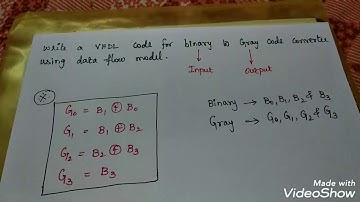 Write a VHDL code for binary to Gray code converter
using data flow model.
Input
Output
*
G0 = B1 ⊕ B0
G1 = B1 ⊕ B2
G2 = B2 ⊕ B3
G3 = B3
Binary → B0, B1, B2 & B3
Gray → G0, G1, G2 & G3
Made with
VideoShow